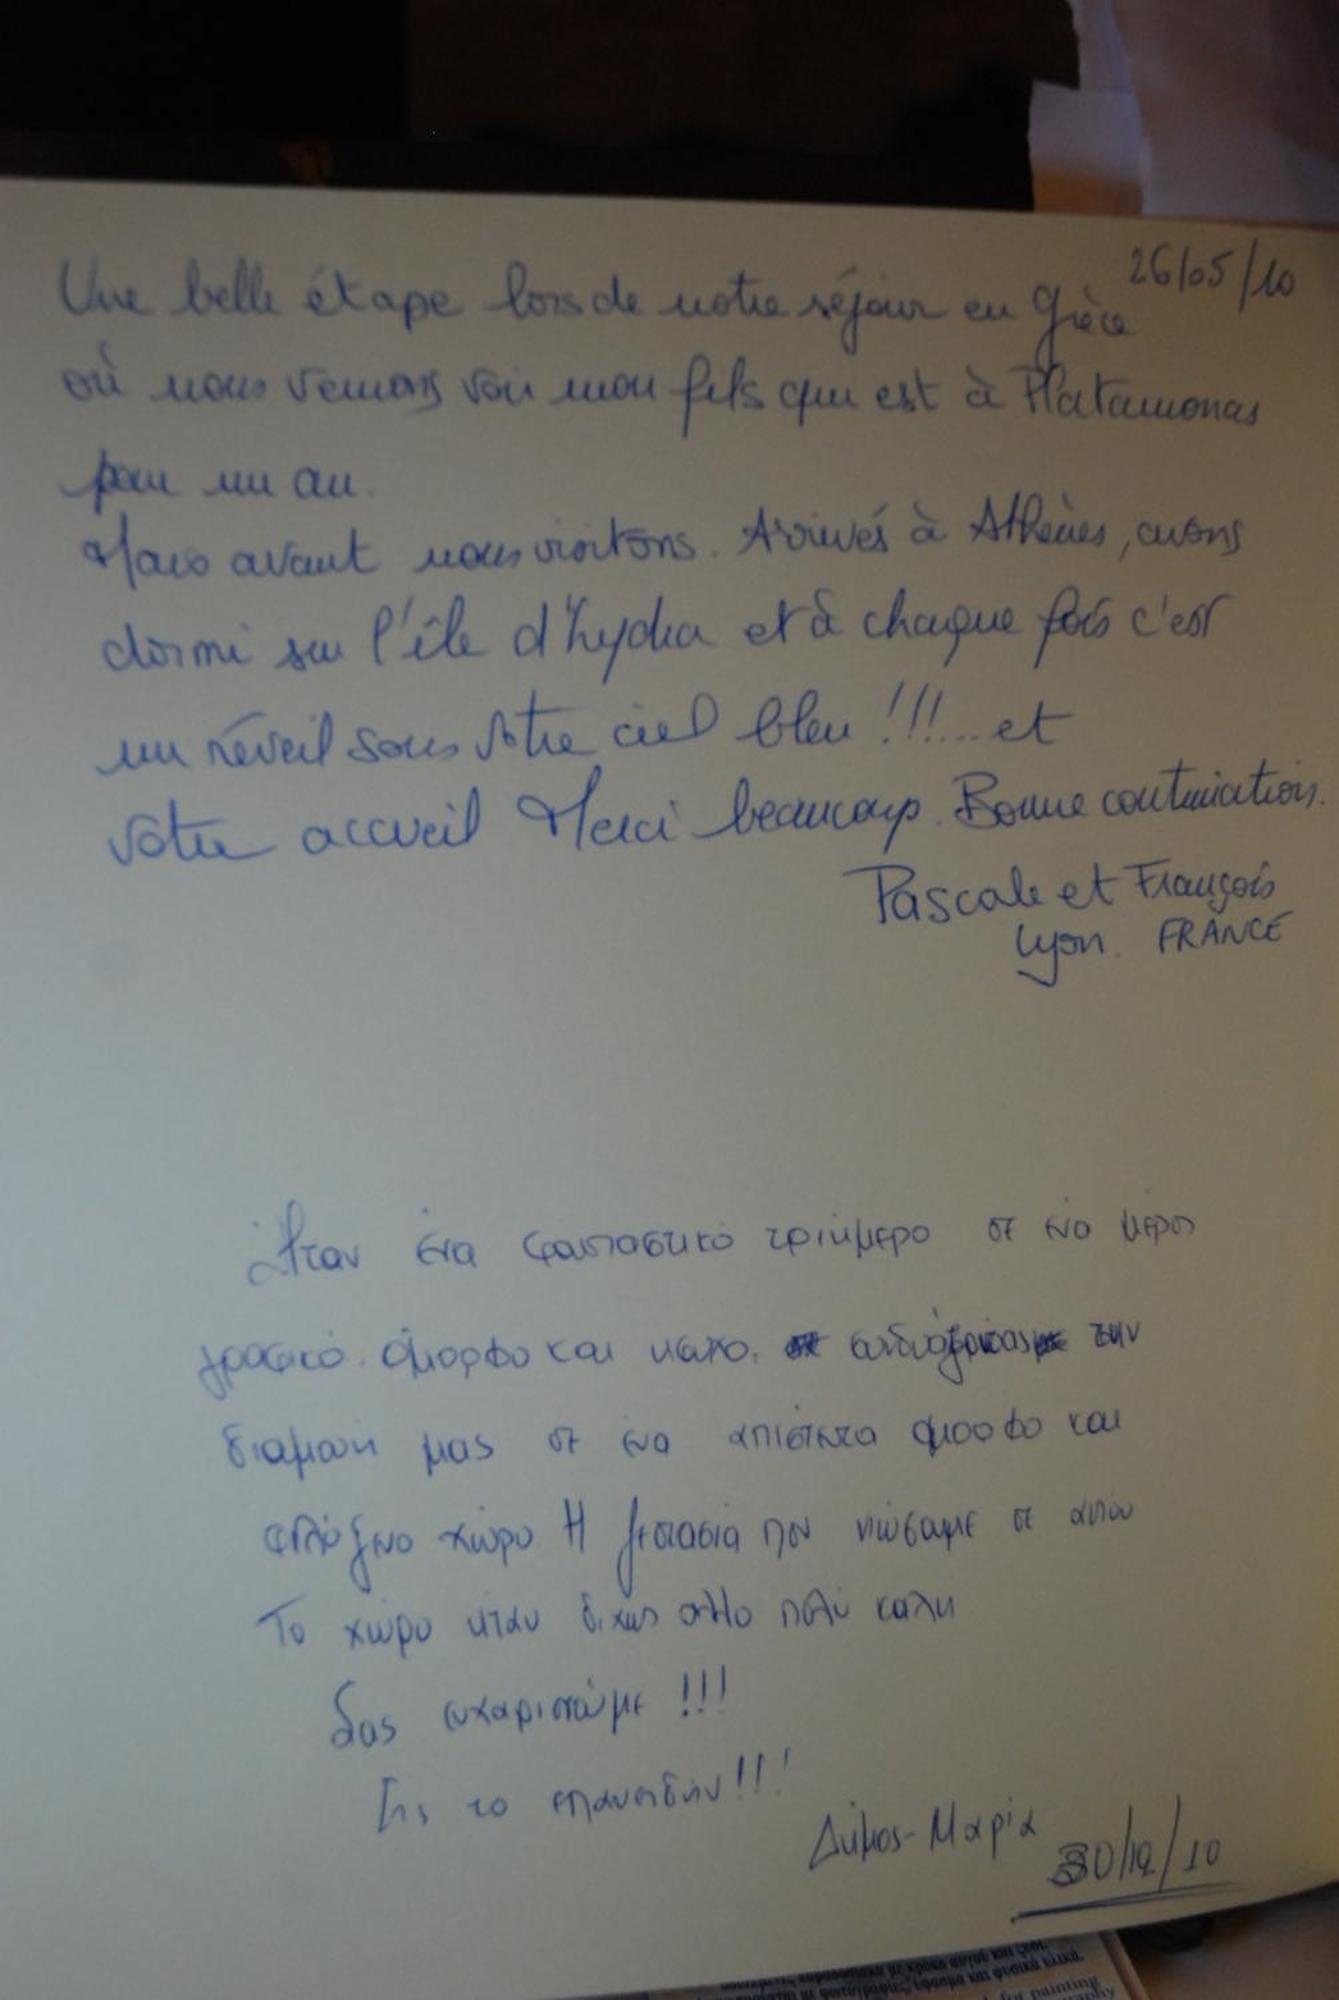 26/05/10
Une belle étape lors de notre séjour en Grèce
où nous venons voir mon fils qui est à Platamonas
pour un an.
Mais avant nous visitons. Arrivés à Athènes, avons
dormi sur l'île d'hydra et à chaque fois c'est
un réveil sous votre ciel bleu !!!... et
votre accueil Merci beaucoup. Bonne continuation.
Pascale et François
Lyon. FRANCE
Ήταν ένα φανταστικό τριήμερο σε ένα μέρος
γραφικό. όμορφο και την
διαμονή μας σε ένα απίστευτα όμορφο και
φιλόξενο χώρο Η ζεστασιά που νιώσαμε σε αυτόν
Το χώρο ήταν δίχως άλλο πολύ καλή
Σας ευχαριστούμε !!!
Εις το επανειδήν!!!
Δήμος-Μαρία
30/12/10
for painting